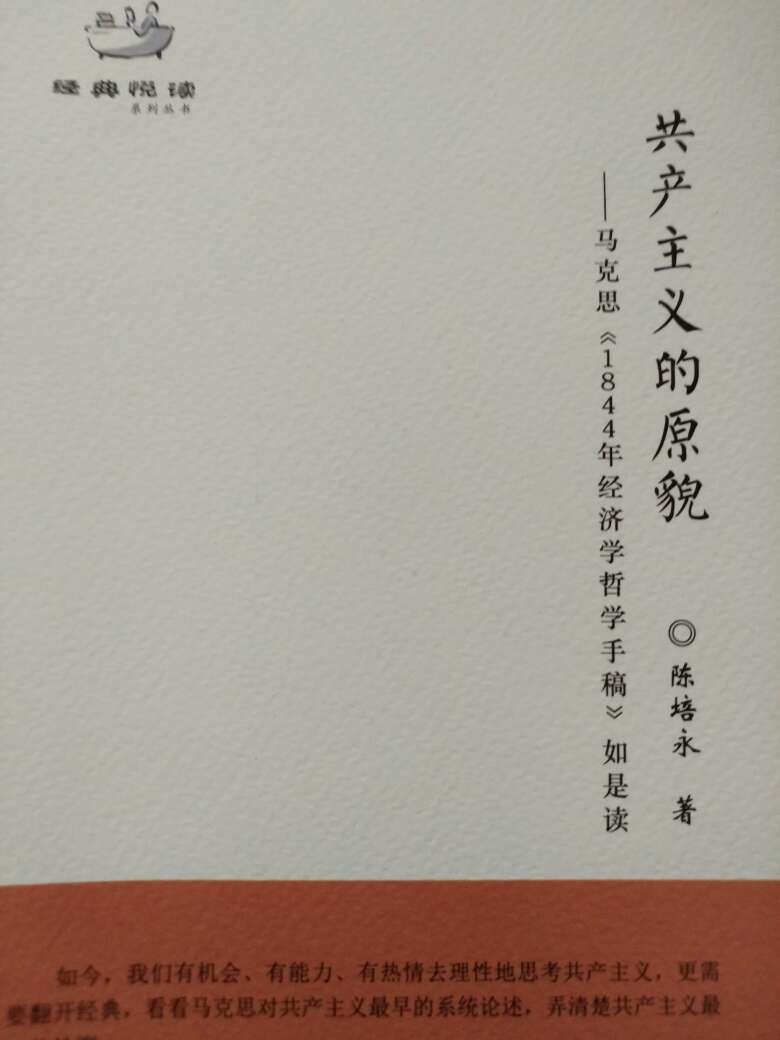 经典悦读
系列丛书
共产主义的原貌
——马克思《1844年经济学哲学手稿》如是读
◎陈培永 著
如今，我们有机会、有能力、有热情去理性地思考共产主义，更需
要翻开经典，看看马克思对共产主义最早的系统论述，弄清楚共产主义最